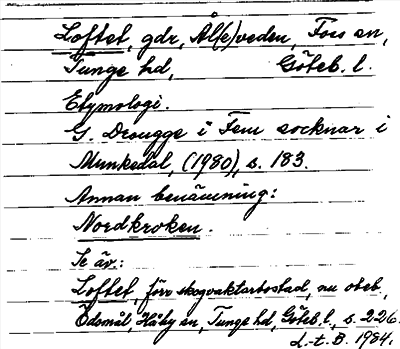 Loftet, gdr, Ål(e)veden, Foss sn,
Tunge hd, Göteb. l.
Etymologi.
G. Drougge i Fem socknar i
Munkedal, (1980), s. 183.
Annan benämning:
Nordkroken.
Se äv.:
Loftet, förr skogvaktarbostad, nu obeb.,
Ödsmål, Håby sn, Tunge hd, Göteb. l., s. 226.
L-t. B. 1984.